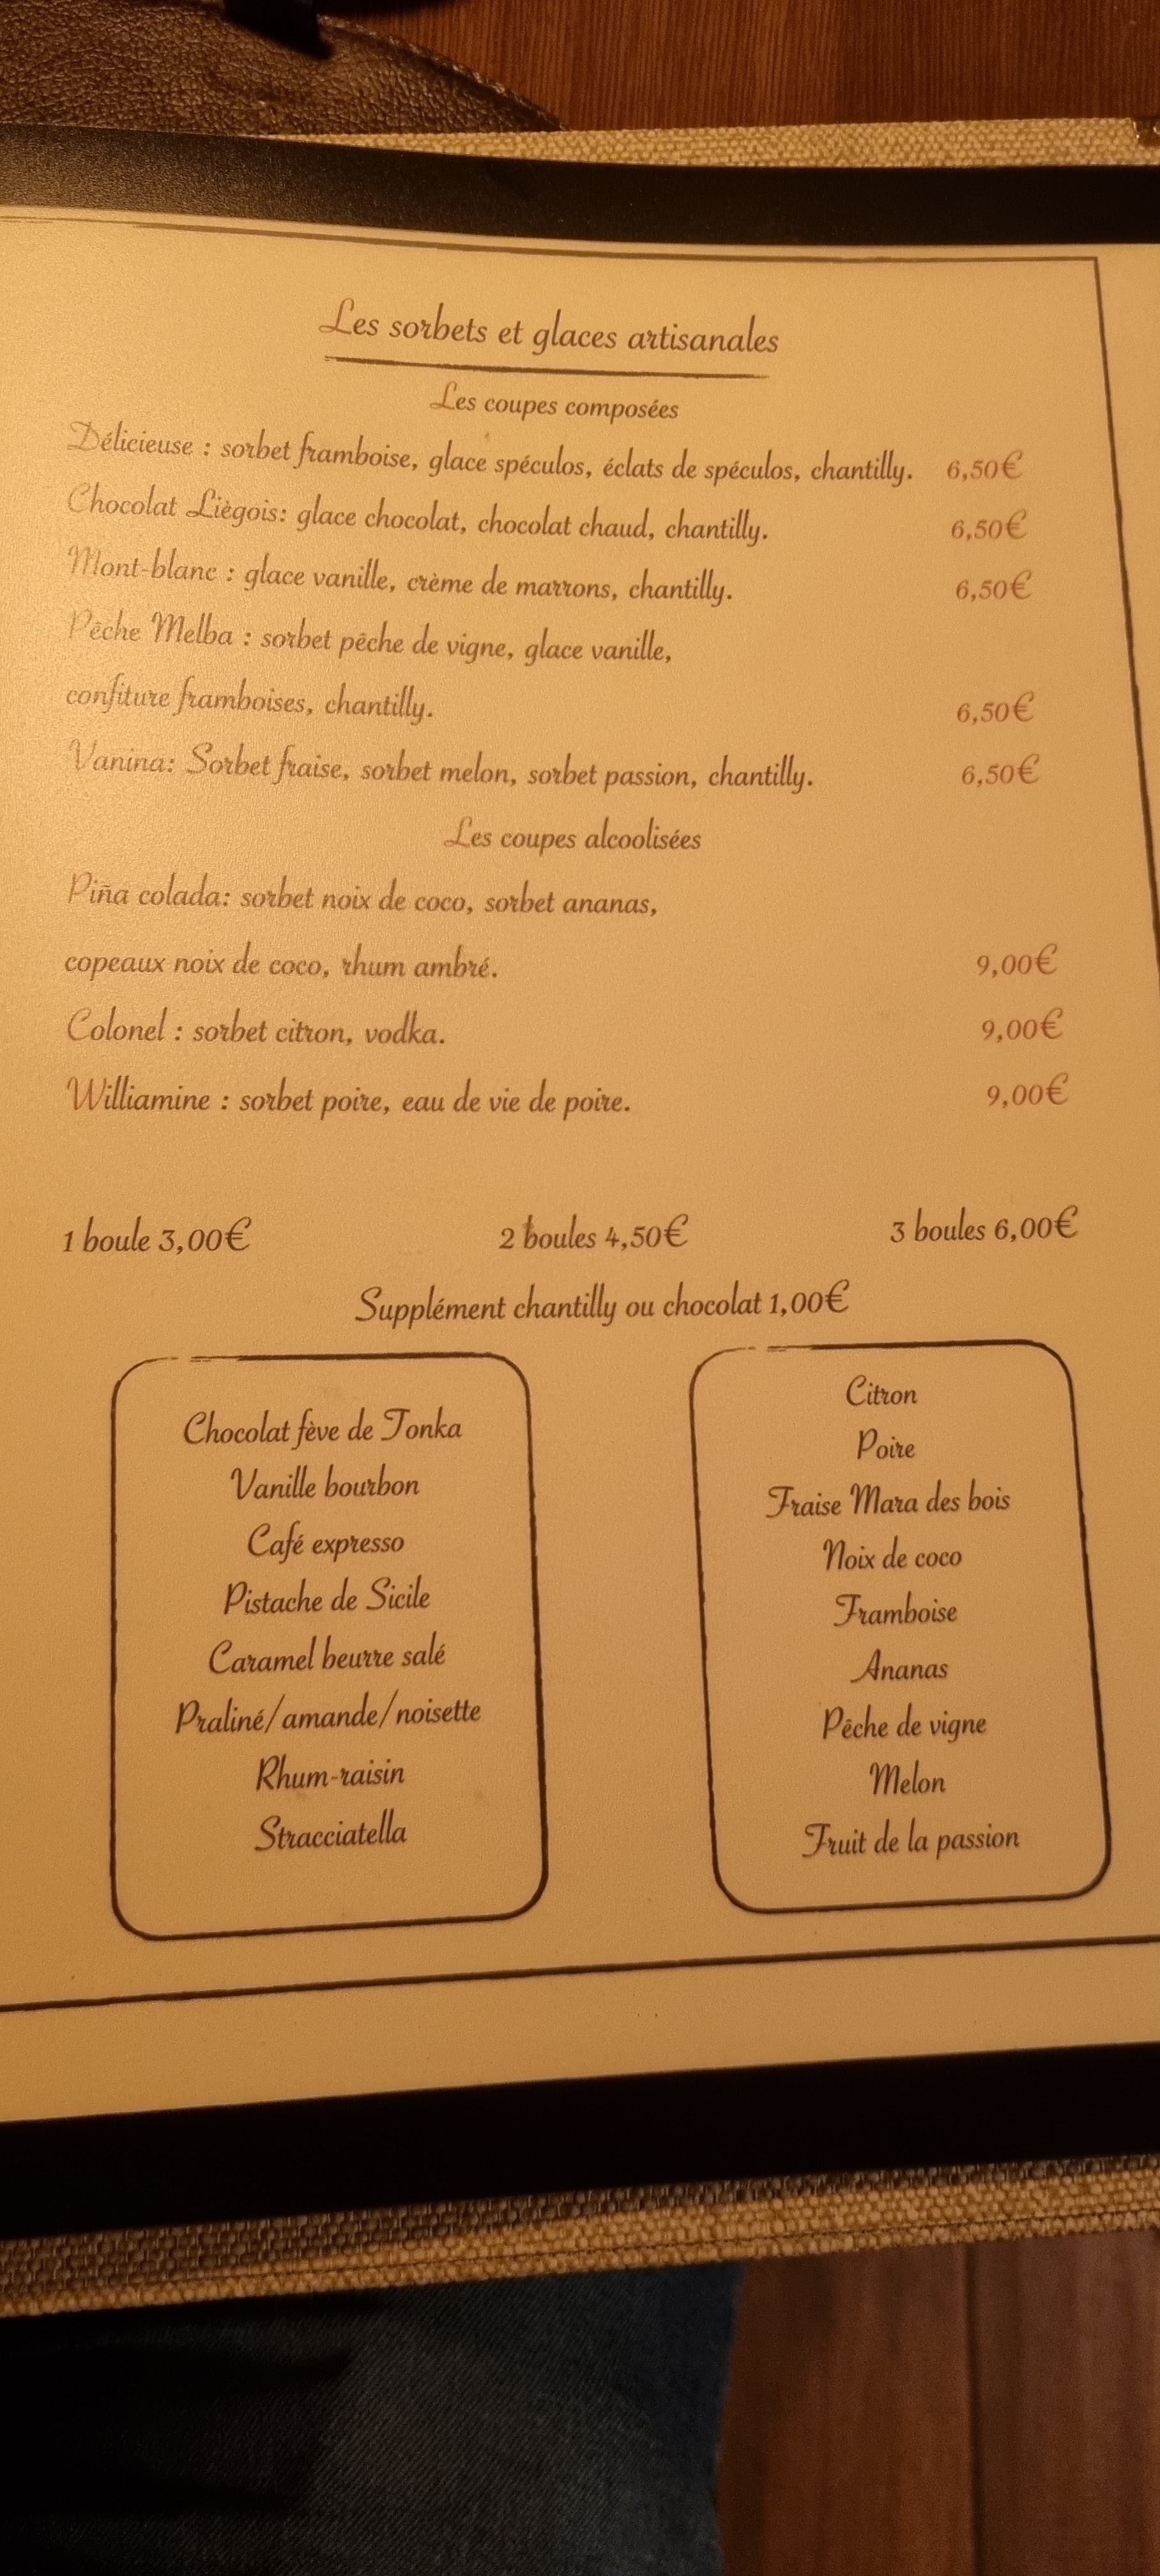 Les sorbets et glaces artisanales
Les coupes composées
Délicieuse : sorbet framboise, glace spéculos, éclats de spéculos, chantilly. 6,50€
Chocolat Liègois: glace chocolat, chocolat chaud, chantilly. 6,50€
Mont-blanc : glace vanille, crème de marrons, chantilly. 6,50€
Pêche Melba : sorbet pêche de vigne, glace vanille,
confiture framboises, chantilly. 6,50€
Vanina: Sorbet fraise, sorbet melon, sorbet passion, chantilly. 6,50€
Les coupes alcoolisées
Piña colada: sorbet noix de coco, sorbet ananas,
copeaux noix de coco, rhum ambré. 9,00€
Colonel : sorbet citron, vodka. 9,00€
Williamine : sorbet poire, eau de vie de poire. 9,00€
1 boule 3,00€ 2 boules 4,50€ 3 boules 6,00€
Supplément chantilly ou chocolat 1,00€
Chocolat fève de Tonka
Vanille bourbon
Café expresso
Pistache de Sicile
Caramel beurre salé
Praliné/amande/noisette
Rhum-raisin
Stracciatella
Citron
Poire
Fraise Mara des bois
Noix de coco
Framboise
Ananas
Pêche de vigne
Melon
Fruit de la passion